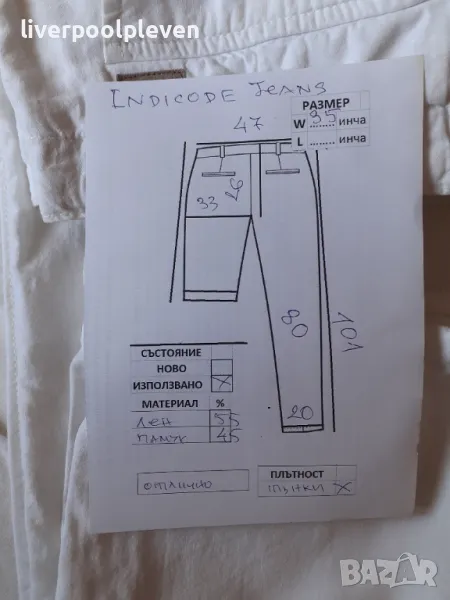 liverpoolpleven
INDICODE JEANS
РАЗМЕР
W 35 инча
L ........ инча
47
33
26
80
101
20
СЪСТОЯНИЕ
НОВО
ИЗПОЛЗВАНО X
МАТЕРИАЛ %
ЛЕН 55
ПАМУК 45
ОТЛИЧНО
ПЛЪТНОСТ
ТЪНКИ X
BAZAR